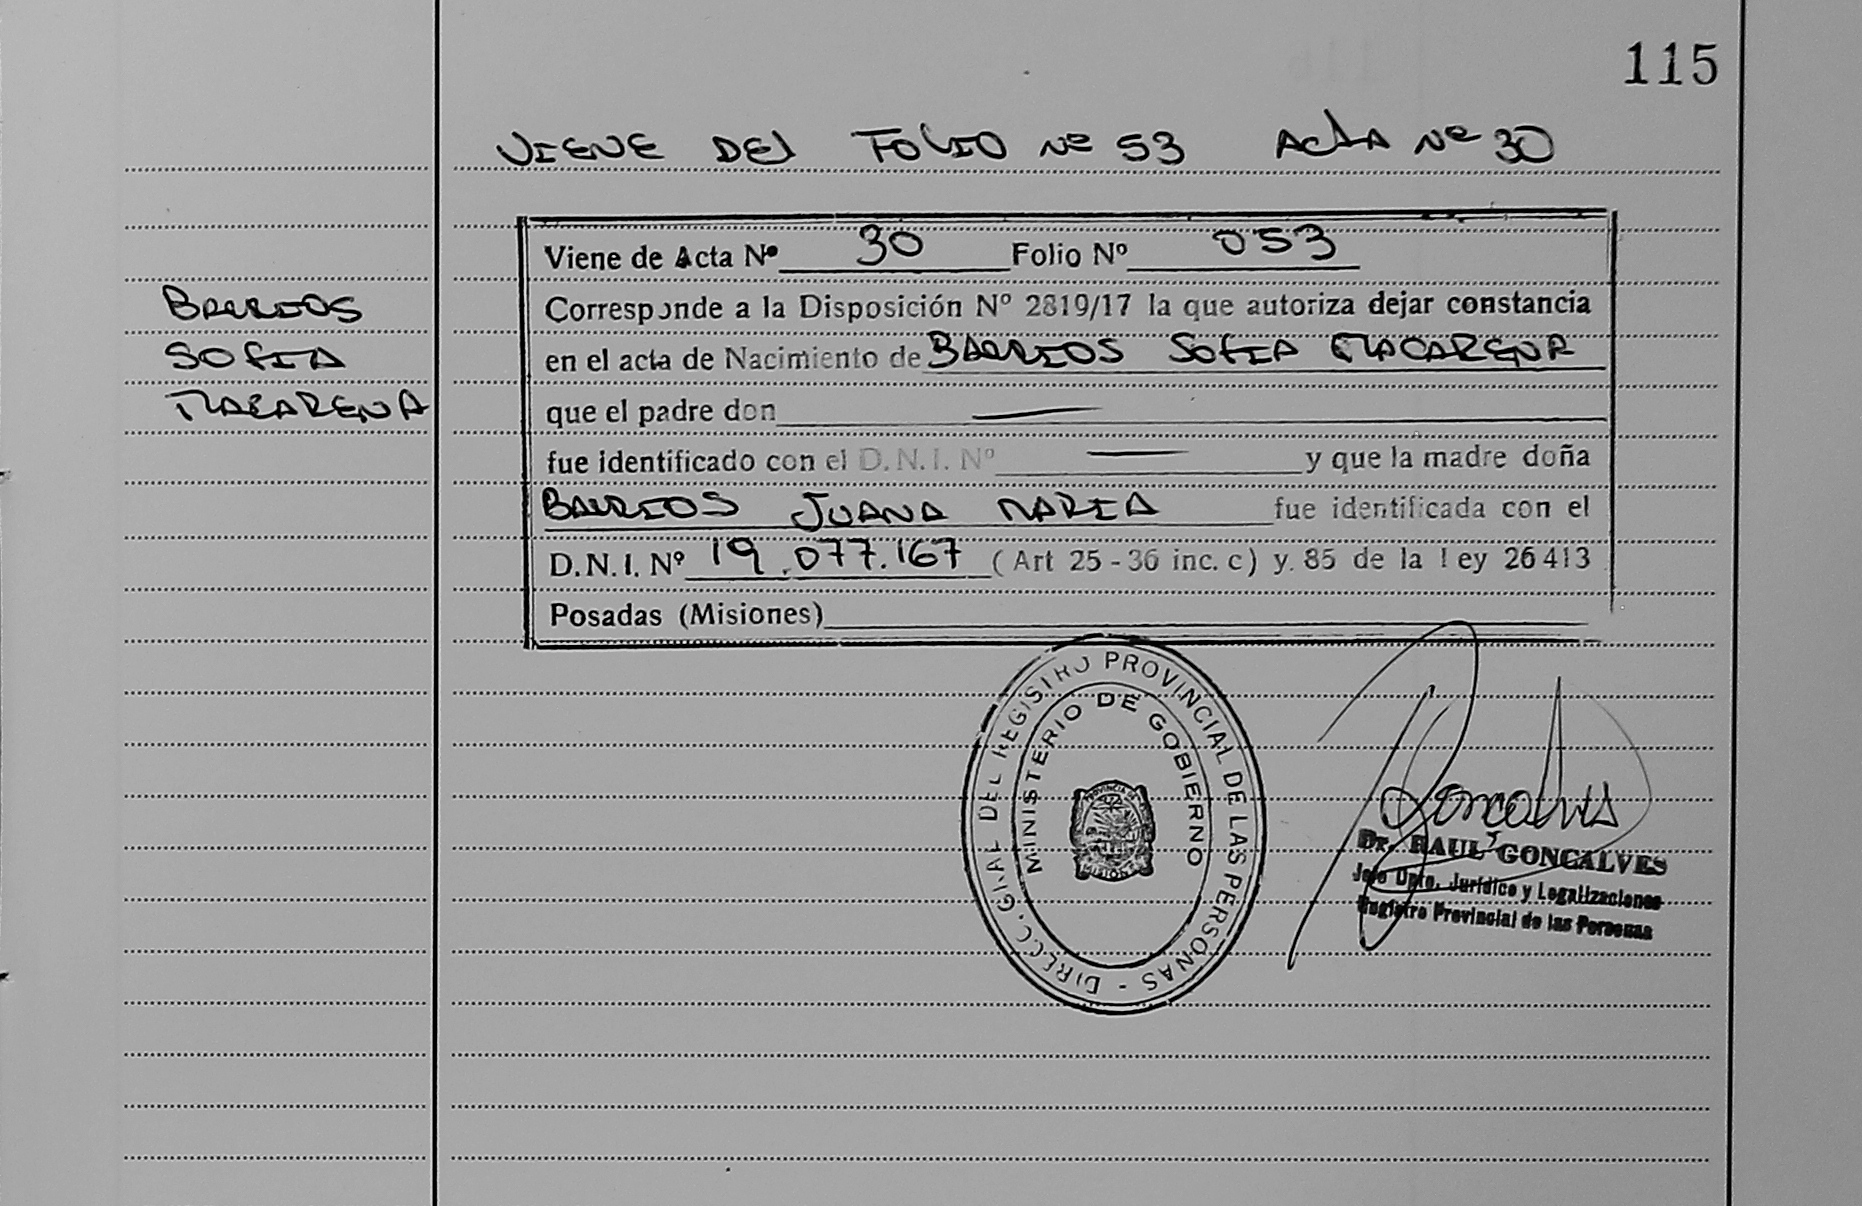 115
VIENE DEL FOLIO Nº 53 ACTA Nº 30
Viene de Acta Nº 30 Folio Nº 053
Corresponde a la Disposición Nº 2819/17 la que autoriza dejar constancia
en el acta de Nacimiento de BARRIOS SOFIA MACARENA
que el padre don —
fue identificado con el D.N.I. Nº — y que la madre doña
BARRIOS JUANA MARIA fue identificada con el
D.N.I. Nº 19.077.167 ( Art 25 - 36 inc. c) y. 85 de la ley 26413
Posadas (Misiones)
BARRIOS
SOFIA
MACARENA
DIRECC. GRAL DEL REGISTRO PROVINCIAL DE LAS PERSONAS -
MINISTERIO DE GOBIERNO
PROVINCIA DE
MISIONES
Goncalves
Dr. RAUL GONCALVES
Jefe Dpto. Jurídico y Legalizaciones
Registro Provincial de las Personas